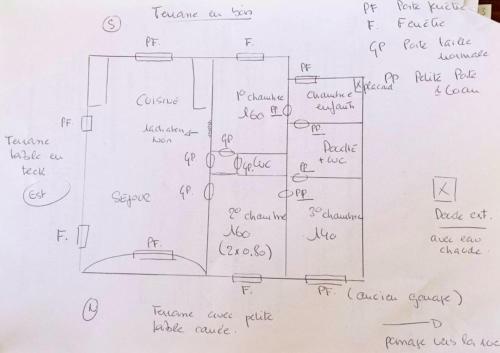 S
Terrasse en bois
PF Porte fenêtre
F. Fenêtre
GP Porte taille
normale
PP Petite Porte
± 60 cm
PF.
F.
PF
CUISINE
1° chambre
160
PP.
chambre
enfants
placard
radiateur
noir
PF.
Terrasse
table en
teck
Est
GP
GP
GP.
WC
PP.
Douche
+ WC
GP.
PP.
PP.
SÉJOUR
2° chambre
160
(2x0,80)
3° chambre
140
Douche ext.
avec eau
chaude.
F.
PF.
F.
PF.
(ancien garage)
N
Terrasse avec petite
table carrée.
passage vers la rue